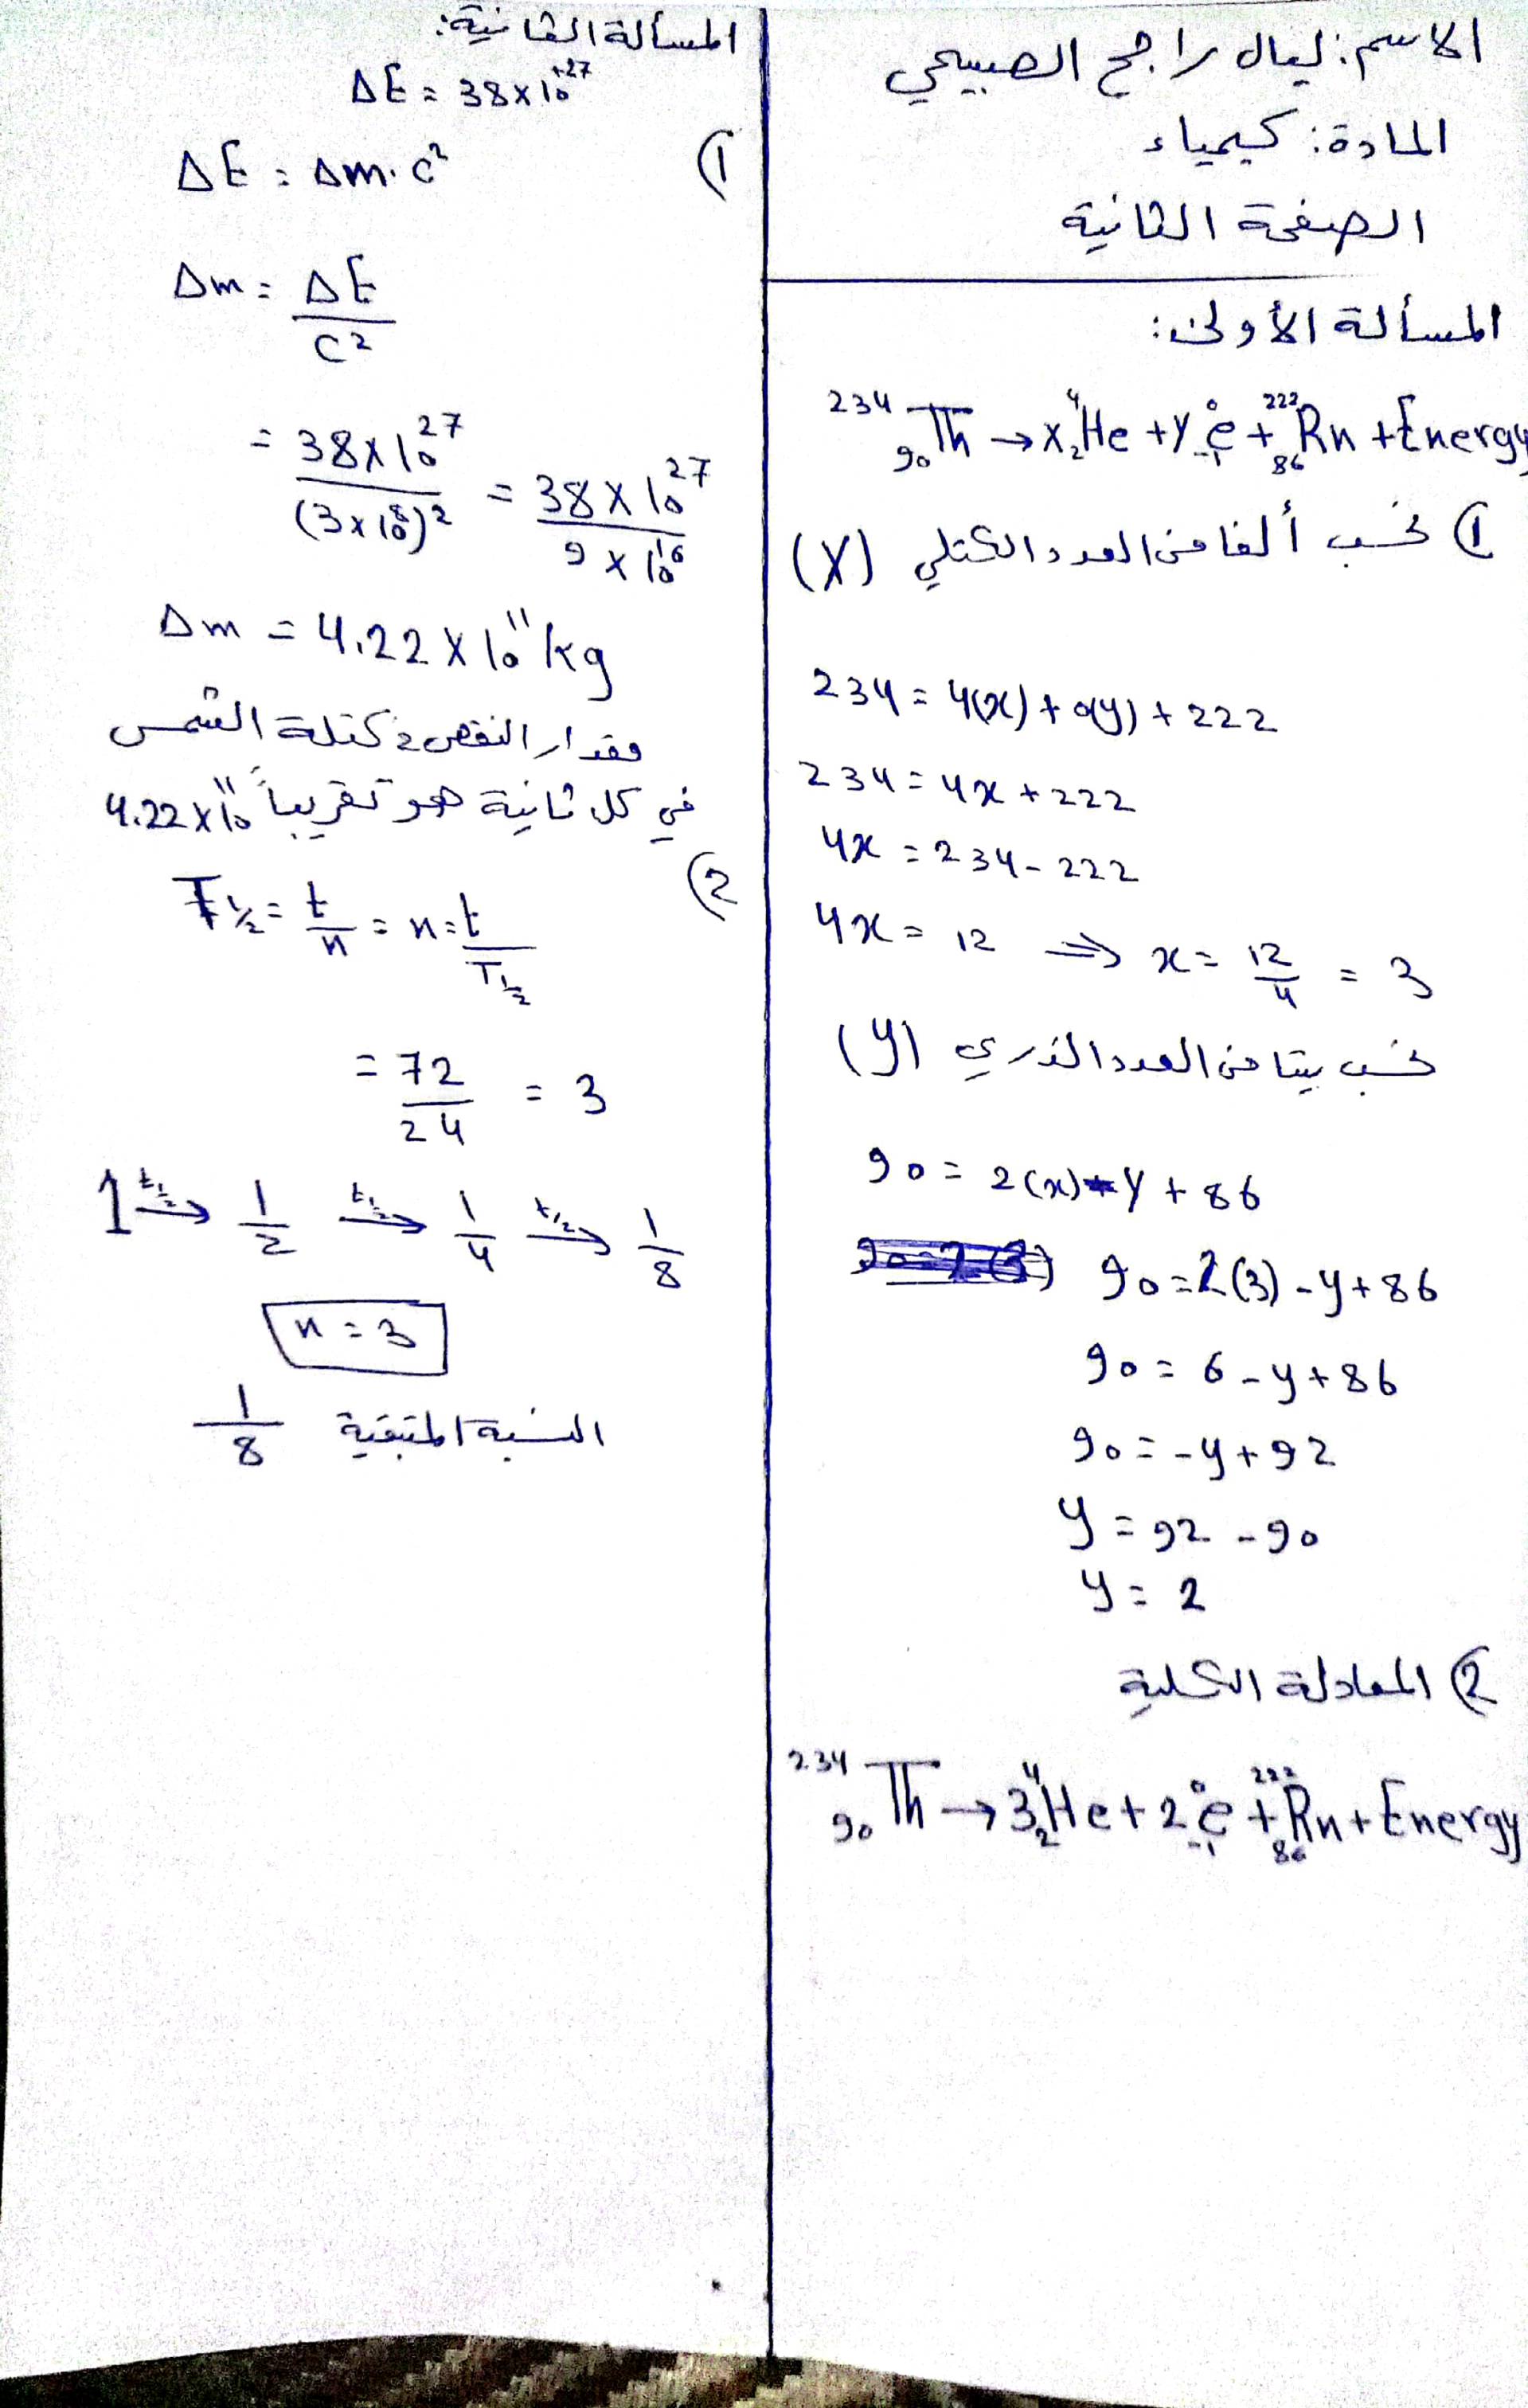 الاسم: ليال راجح الصبيحي
المادة: كيمياء
الصفحة الثانية
المسألة الأولى:
²³⁴₉₀Th → x ⁴₂He + y ⁰₋₁e + ²²²₈₆Rn + Energy
① نحسب ألفا من العدد الكتلي (X)
234 = 4(x) + 0(y) + 222
234 = 4x + 222
4x = 234 - 222
4x = 12 ⇒ x = 12/4 = 3
نحسب بيتا من العدد الذري (y)
90 = 2(x) - y + 86
90 = 2(3) - y + 86
90 = 6 - y + 86
90 = -y + 92
y = 92 - 90
y = 2
② المعادلة الكلية
²³⁴₉₀Th → 3 ⁴₂He + 2 ⁰₋₁e + ²²²₈₆Rn + Energy
المسألة الثانية:
ΔE = 38 × 10⁺²⁷
1) ΔE = Δm . C²
Δm = ΔE/C²
= 38 × 10²⁷/(3 × 10⁸)² = 38 × 10²⁷/9 × 10¹⁶
Δm = 4.22 × 10¹¹ kg
مقدار النقص في كتلة الشمس
في كل ثانية هو تقريباً 4.22 × 10¹¹
2) T½ = t/n = n = t/T½
= 72/24 = 3
1 →(t½) 1/2 →(t½) 1/4 →(t½) 1/8
n = 3
النسبة المتبقية 1/8